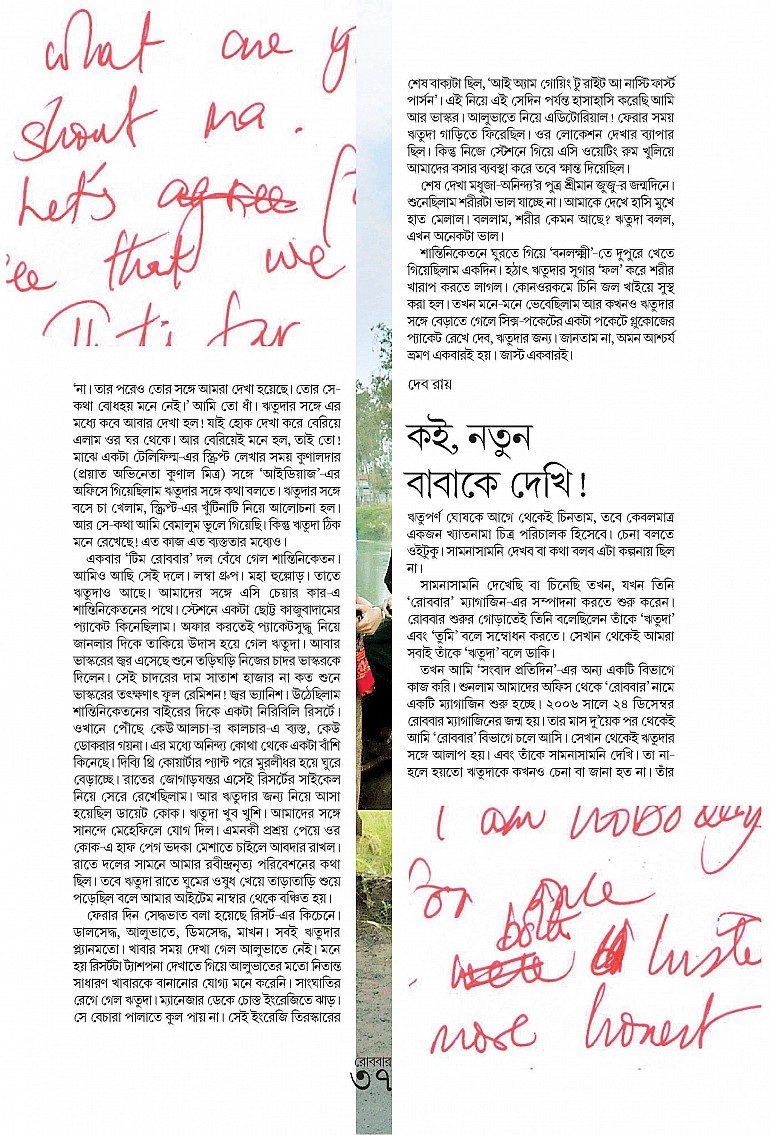 what are
shout ma.
Let's agree
that we
'না। তার পরেও তোর সঙ্গে আমরা দেখা হয়েছে। তোর সে-
কথা বোধহয় মনে নেই।' আমি তো ধাঁ। ঋতুদার সঙ্গে এর
মধ্যে কবে আবার দেখা হল! যাই হোক দেখা করে বেরিয়ে
এলাম ওর ঘর থেকে। আর বেরিয়েই মনে হল, তাই তো!
মাঝে একটা টেলিফিল্ম-এর স্ক্রিপ্ট লেখার সময় কুণালদার
(প্রয়াত অভিনেতা কুণাল মিত্র) সঙ্গে 'আইডিয়াজ'-এর
অফিসে গিয়েছিলাম ঋতুদার সঙ্গে কথা বলতে। ঋতুদার সঙ্গে
বসে চা খেলাম, স্ক্রিপ্ট-এর খুঁটিনাটি নিয়ে আলোচনা হল।
আর সে-কথা আমি বেমালুম ভুলে গিয়েছি। কিন্তু ঋতুদা ঠিক
মনে রেখেছে! এত কাজ এত ব্যস্ততার মধ্যেও।
একবার 'টিম রোববার' দল বেঁধে গেল শান্তিনিকেতন।
আমিও আছি সেই দলে। লম্বা গ্রুপ। মহা হুল্লোড়। তাতে
ঋতুদাও আছে। আমাদের সঙ্গে এসি চেয়ার কার-এ
শান্তিনিকেতনের পথে। স্টেশনে একটা ছোট্ট কাজুবাদামের
প্যাকেট কিনেছিলাম। অফার করতেই প্যাকেটসুদ্ধু নিয়ে
জানলার দিকে তাকিয়ে উদাস হয়ে গেল ঋতুদা। আবার
ভাস্করের জ্বর এসেছে শুনে তড়িঘড়ি নিজের চাদর ভাস্করকে
দিলেন। সেই চাদরের দাম সাতাশ হাজার না কত শুনে
ভাস্করের তৎক্ষণাৎ ফুল রেমিশন! জ্বর ভ্যানিশ। উঠেছিলাম
শান্তিনিকেতনের বাইরের দিকে একটা নিরিবিলি রিসর্টে।
ওখানে পৌঁছে কেউ আলচা-র কালচার-এ ব্যস্ত, কেউ
ডোকরার গয়না। এর মধ্যে অনিন্দ্য কোথা থেকে একটা বাঁশি
কিনেছে। দিব্যি থ্রি কোয়ার্টার প্যান্ট পরে মুরলীধর হয়ে ঘুরে
বেড়াচ্ছে। রাতের জোগাড়যন্তর এসেই রিসর্টের সাইকেল
নিয়ে সেরে রেখেছিলাম। আর ঋতুদার জন্য নিয়ে আসা
হয়েছিল ডায়েট কোক। ঋতুদা খুব খুশি। আমাদের সঙ্গে
সানন্দে মেহেফিলে যোগ দিল। এমনকী প্রশ্রয় পেয়ে ওর
কোক-এ হাফ পেগ ভদকা মেশাতে চাইলে আবদার রাখল।
রাতে দলের সামনে আমার রবীন্দ্রনৃত্য পরিবেশনের কথা
ছিল। তবে ঋতুদা রাতে ঘুমের ওষুধ খেয়ে তাড়াতাড়ি শুয়ে
পড়েছিল বলে আমার আইটেম নাম্বার থেকে বঞ্চিত হয়।
ফেরার দিন সেদ্ধভাত বলা হয়েছে রিসর্ট-এর কিচেনে।
ডালসেদ্ধ, আলুভাতে, ডিমসেদ্ধ, মাখন। সবই ঋতুদার
প্ল্যানমতো। খাবার সময় দেখা গেল আলুভাতে নেই। মনে
হয় রিসর্টটা ট্যাঁশপনা দেখাতে গিয়ে আলুভাতের মতো নিতান্ত
সাধারণ খাবারকে বানানোর যোগ্য মনে করেনি। সাংঘাতির
রেগে গেল ঋতুদা। ম্যানেজার ডেকে চোস্ত ইংরেজিতে ঝাড়।
সে বেচারা পালাতে কুল পায় না। সেই ইংরেজি তিরস্কারের
শেষ বাক্যটা ছিল, 'আই অ্যাম গোয়িং টু রাইট আ নাস্টি ফার্স্ট
পার্সন'। এই নিয়ে এই সেদিন পর্যন্ত হাসাহাসি করেছি আমি
আর ভাস্কর। আলুভাতে নিয়ে এডিটোরিয়াল! ফেরার সময়
ঋতুদা গাড়িতে ফিরেছিল। ওর লোকেশন দেখার ব্যাপার
ছিল। কিন্তু নিজে স্টেশনে গিয়ে এসি ওয়েটিং রুম খুলিয়ে
আমাদের বসার ব্যবস্থা করে তবে ক্ষান্ত দিয়েছিল।
শেষ দেখা মধুজা-অনিন্দ্য'র পুত্র শ্রীমান জুজু-র জন্মদিনে।
শুনেছিলাম শরীরটা ভাল যাচ্ছে না। আমাকে দেখে হাসি মুখে
হাত মেলাল। বললাম, শরীর কেমন আছে? ঋতুদা বলল,
এখন অনেকটা ভাল।
শান্তিনিকেতনে ঘুরতে গিয়ে 'বনলক্ষ্মী'-তে দুপুরে খেতে
গিয়েছিলাম একদিন। হঠাৎ ঋতুদার সুগার 'ফল' করে শরীর
খারাপ করতে লাগল। কোনওরকমে চিনি জল খাইয়ে সুস্থ
করা হল। তখন মনে-মনে ভেবেছিলাম আর কখনও ঋতুদার
সঙ্গে বেড়াতে গেলে সিক্স-পকেটের একটা পকেটে গ্লুকোজের
প্যাকেট রেখে দেব, ঋতুদার জন্য। জানতাম না, অমন আশ্চর্য
ভ্রমণ একবারই হয়। জাস্ট একবারই।
দেব রায়
কই, নতুন
বাবাকে দেখি!
ঋতুপর্ণ ঘোষকে আগে থেকেই চিনতাম, তবে কেবলমাত্র
একজন খ্যাতনামা চিত্র পরিচালক হিসেবে। চেনা বলতে
ওইটুকু। সামনাসামনি দেখব বা কথা বলব এটা কল্পনায় ছিল
না।
সামনাসামনি দেখেছি বা চিনেছি তখন, যখন তিনি
'রোববার' ম্যাগাজিন-এর সম্পাদনা করতে শুরু করেন।
রোববার শুরুর গোড়াতেই তিনি বলেছিলেন তাঁকে 'ঋতুদা'
এবং 'তুমি' বলে সম্বোধন করতে। সেখান থেকেই আমরা
সবাই তাঁকে 'ঋতুদা' বলে ডাকি।
তখন আমি 'সংবাদ প্রতিদিন'-এর অন্য একটি বিভাগে
কাজ করি। শুনলাম আমাদের অফিস থেকে 'রোববার' নামে
একটি ম্যাগাজিন শুরু হচ্ছে। ২০০৬ সালে ২৪ ডিসেম্বর
রোববার ম্যাগাজিনের জন্ম হয়। তার মাস দু'য়েক পর থেকেই
আমি 'রোববার' বিভাগে চলে আসি। সেখান থেকেই ঋতুদার
সঙ্গে আলাপ হয়। এবং তাঁকে সামনাসামনি দেখি। তা না-
হলে হয়তো ঋতুদাকে কখনও চেনা বা জানা হত না। তাঁর
I am nobody
For once
both
honest
রোববার
৩৭